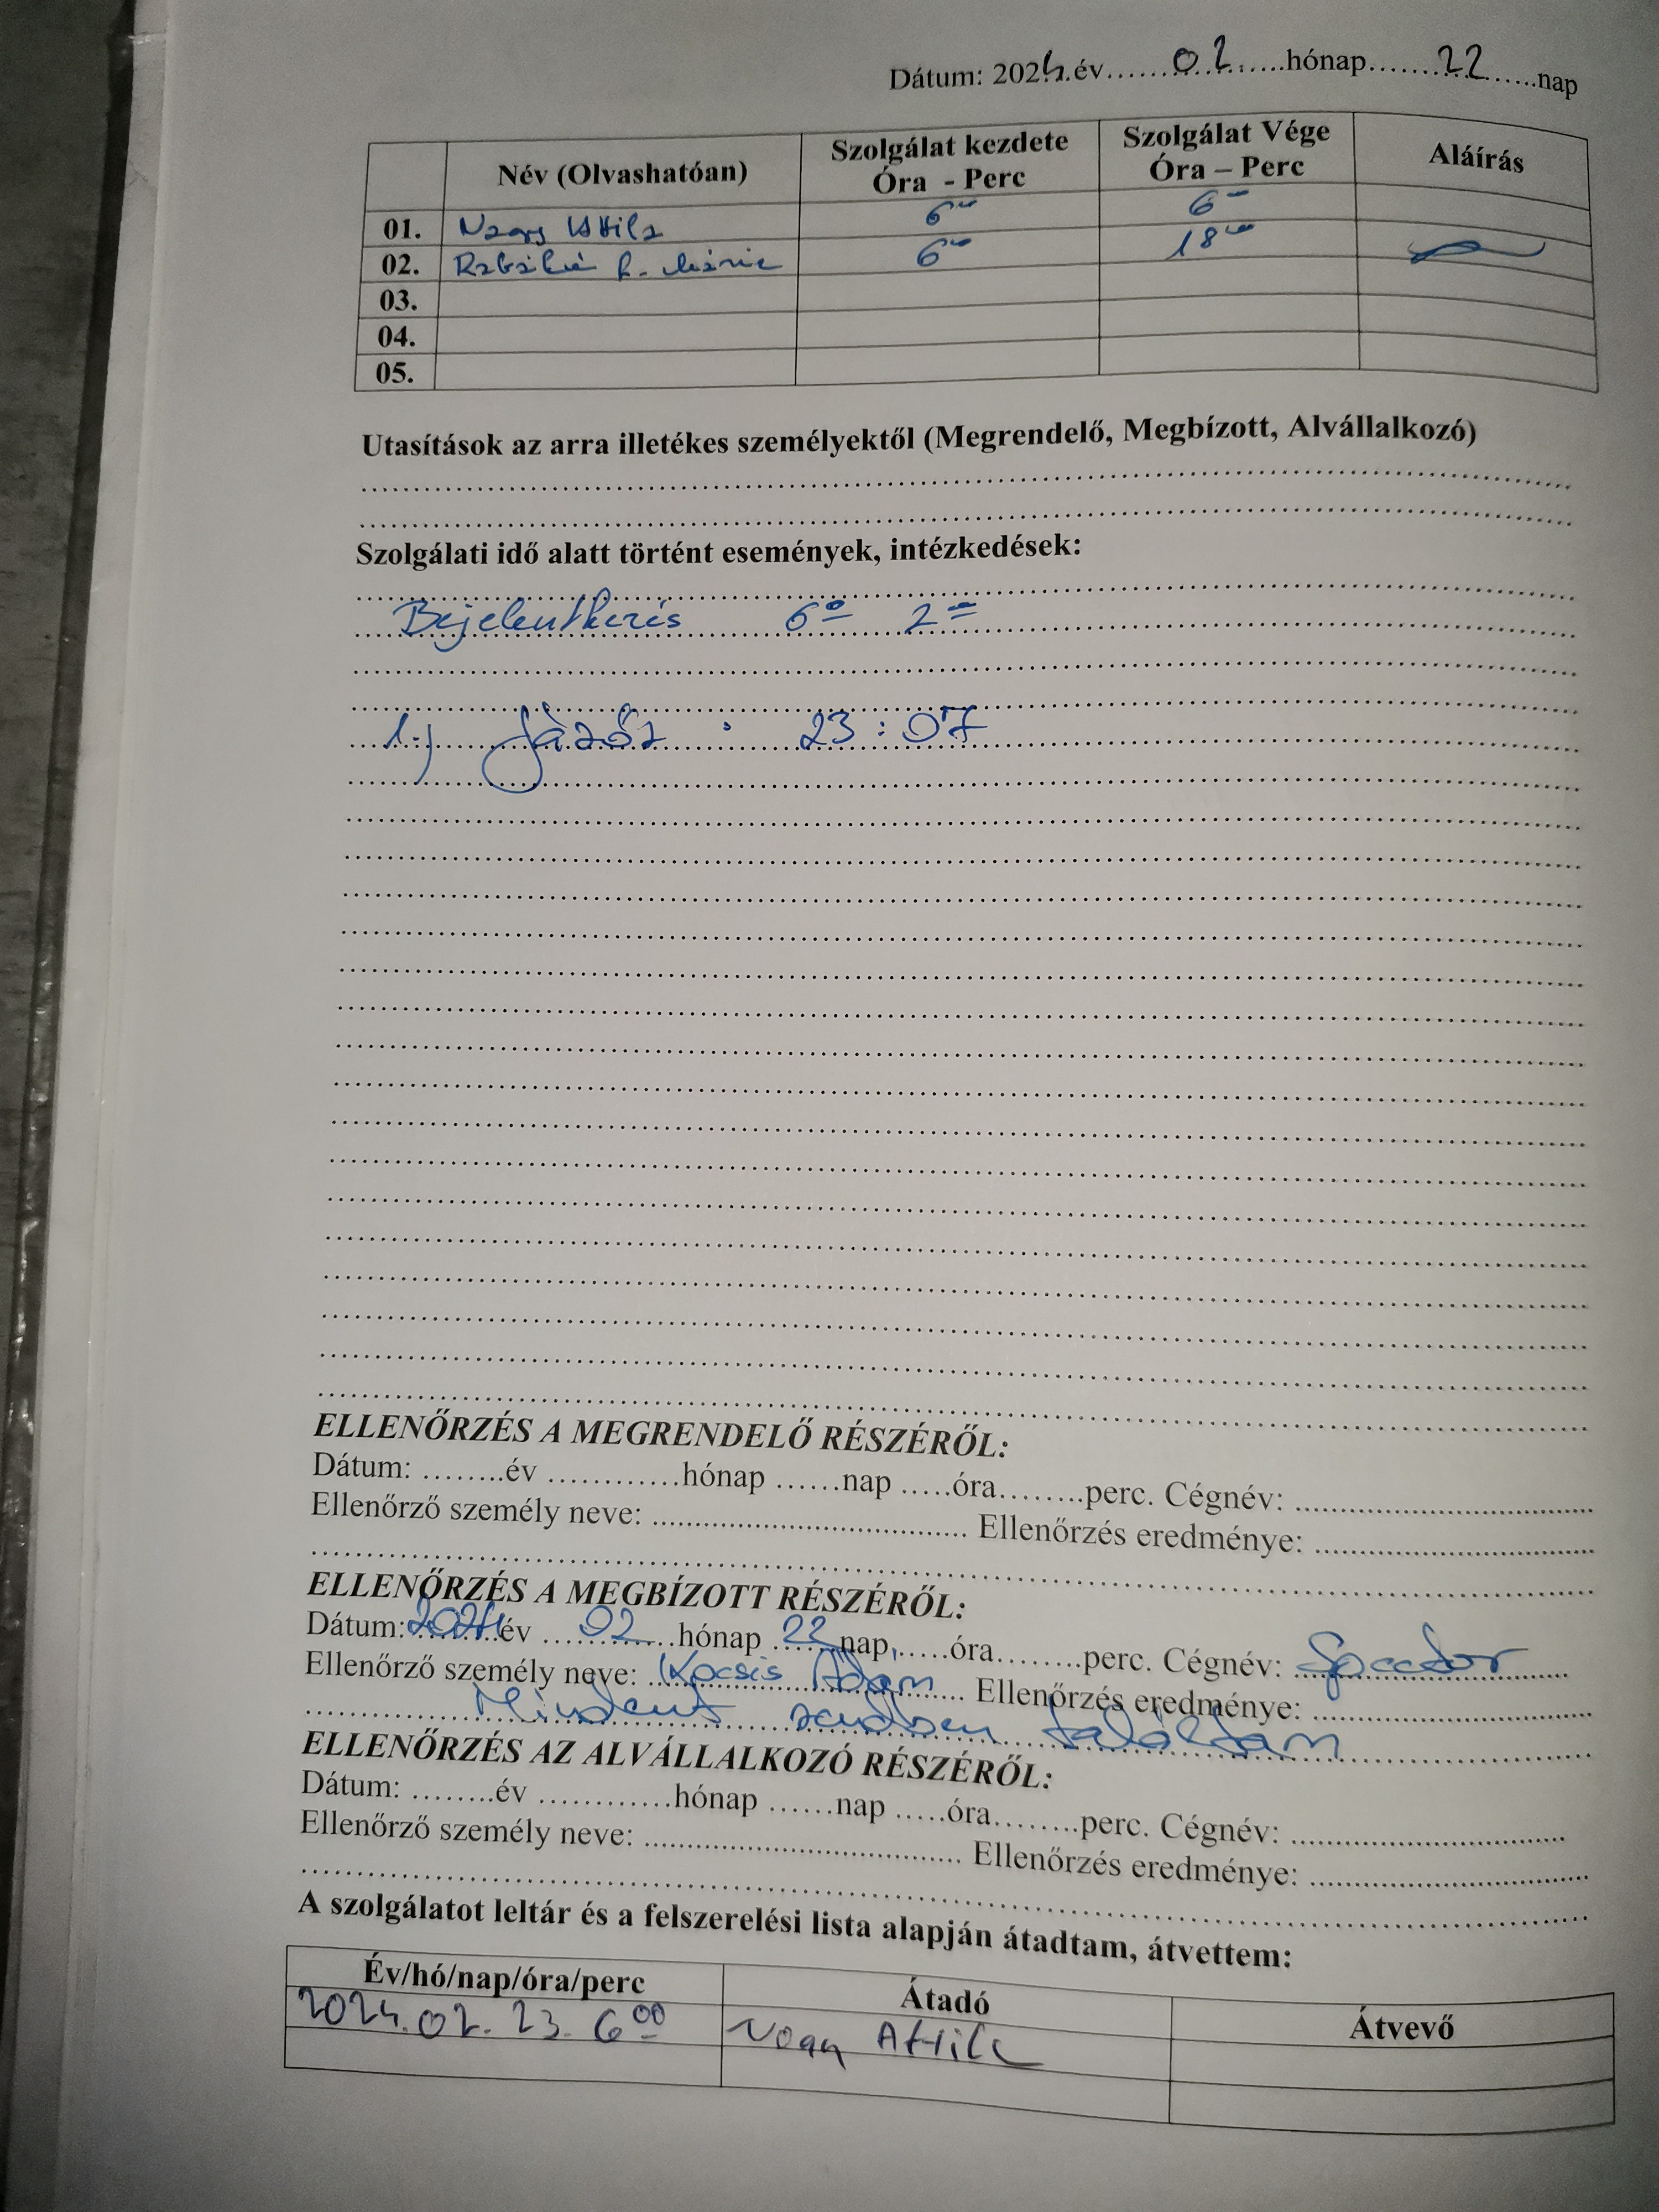 Dátum: 2024.év.......02.......hónap.......22.......nap
Név (Olvashatóan) Szolgálat kezdete Óra - Perc Szolgálat Vége Óra – Perc Aláírás
01. Nagy Attila 6⁰⁰ 6⁰⁰
02. 6⁰⁰ 18⁰⁰
03.
04.
05.
Utasítások az arra illetékes személyektől (Megrendelő, Megbízott, Alvállalkozó)
Szolgálati idő alatt történt események, intézkedések:
Bejelentkezés 6⁰⁰ 2⁰⁰
1.) : 23:07
ELLENŐRZÉS A MEGRENDELŐ RÉSZÉRŐL:
Dátum: ........év ............hónap ......nap .....óra........perc. Cégnév: ..................................
Ellenőrző személy neve: ..................................... Ellenőrzés eredménye: ..................................
ELLENŐRZÉS A MEGBÍZOTT RÉSZÉRŐL:
Dátum: 2024 év 02 hónap 22 nap .....óra........perc. Cégnév:
Ellenőrző személy neve: Kocsis Ádám Ellenőrzés eredménye: ..................................
Mindent rendben találtam
ELLENŐRZÉS AZ ALVÁLLALKOZÓ RÉSZÉRŐL:
Dátum: ........év ............hónap ......nap .....óra........perc. Cégnév: ..................................
Ellenőrző személy neve: ..................................... Ellenőrzés eredménye: ..................................
A szolgálatot leltár és a felszerelési lista alapján átadtam, átvettem:
Év/hó/nap/óra/perc Átadó Átvevő
2024.02.23. 6⁰⁰ Nagy Attila